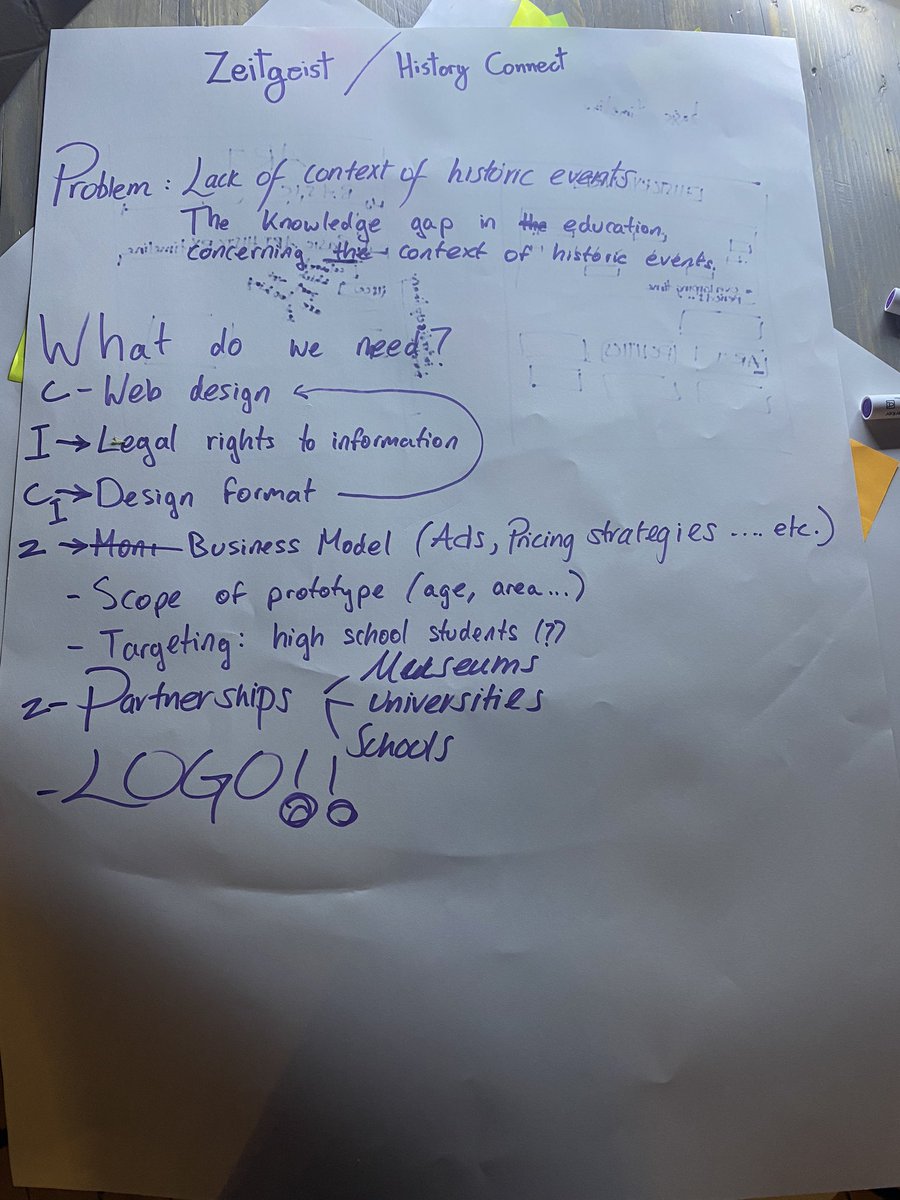 Zeitgeist / History Connect
Problem: Lack of context of historic events
The knowledge gap in the education,
concerning the context of historic events.
What do we need?
C - Web design
I → Legal rights to information
C I → Design format
Z → Mon. Business Model (Ads, Pricing strategies .... etc.)
- Scope of prototype (age, area...)
- Targeting: high school students (??)
Z - Partnerships
Museums
Universities
Schools
- LOGO!!